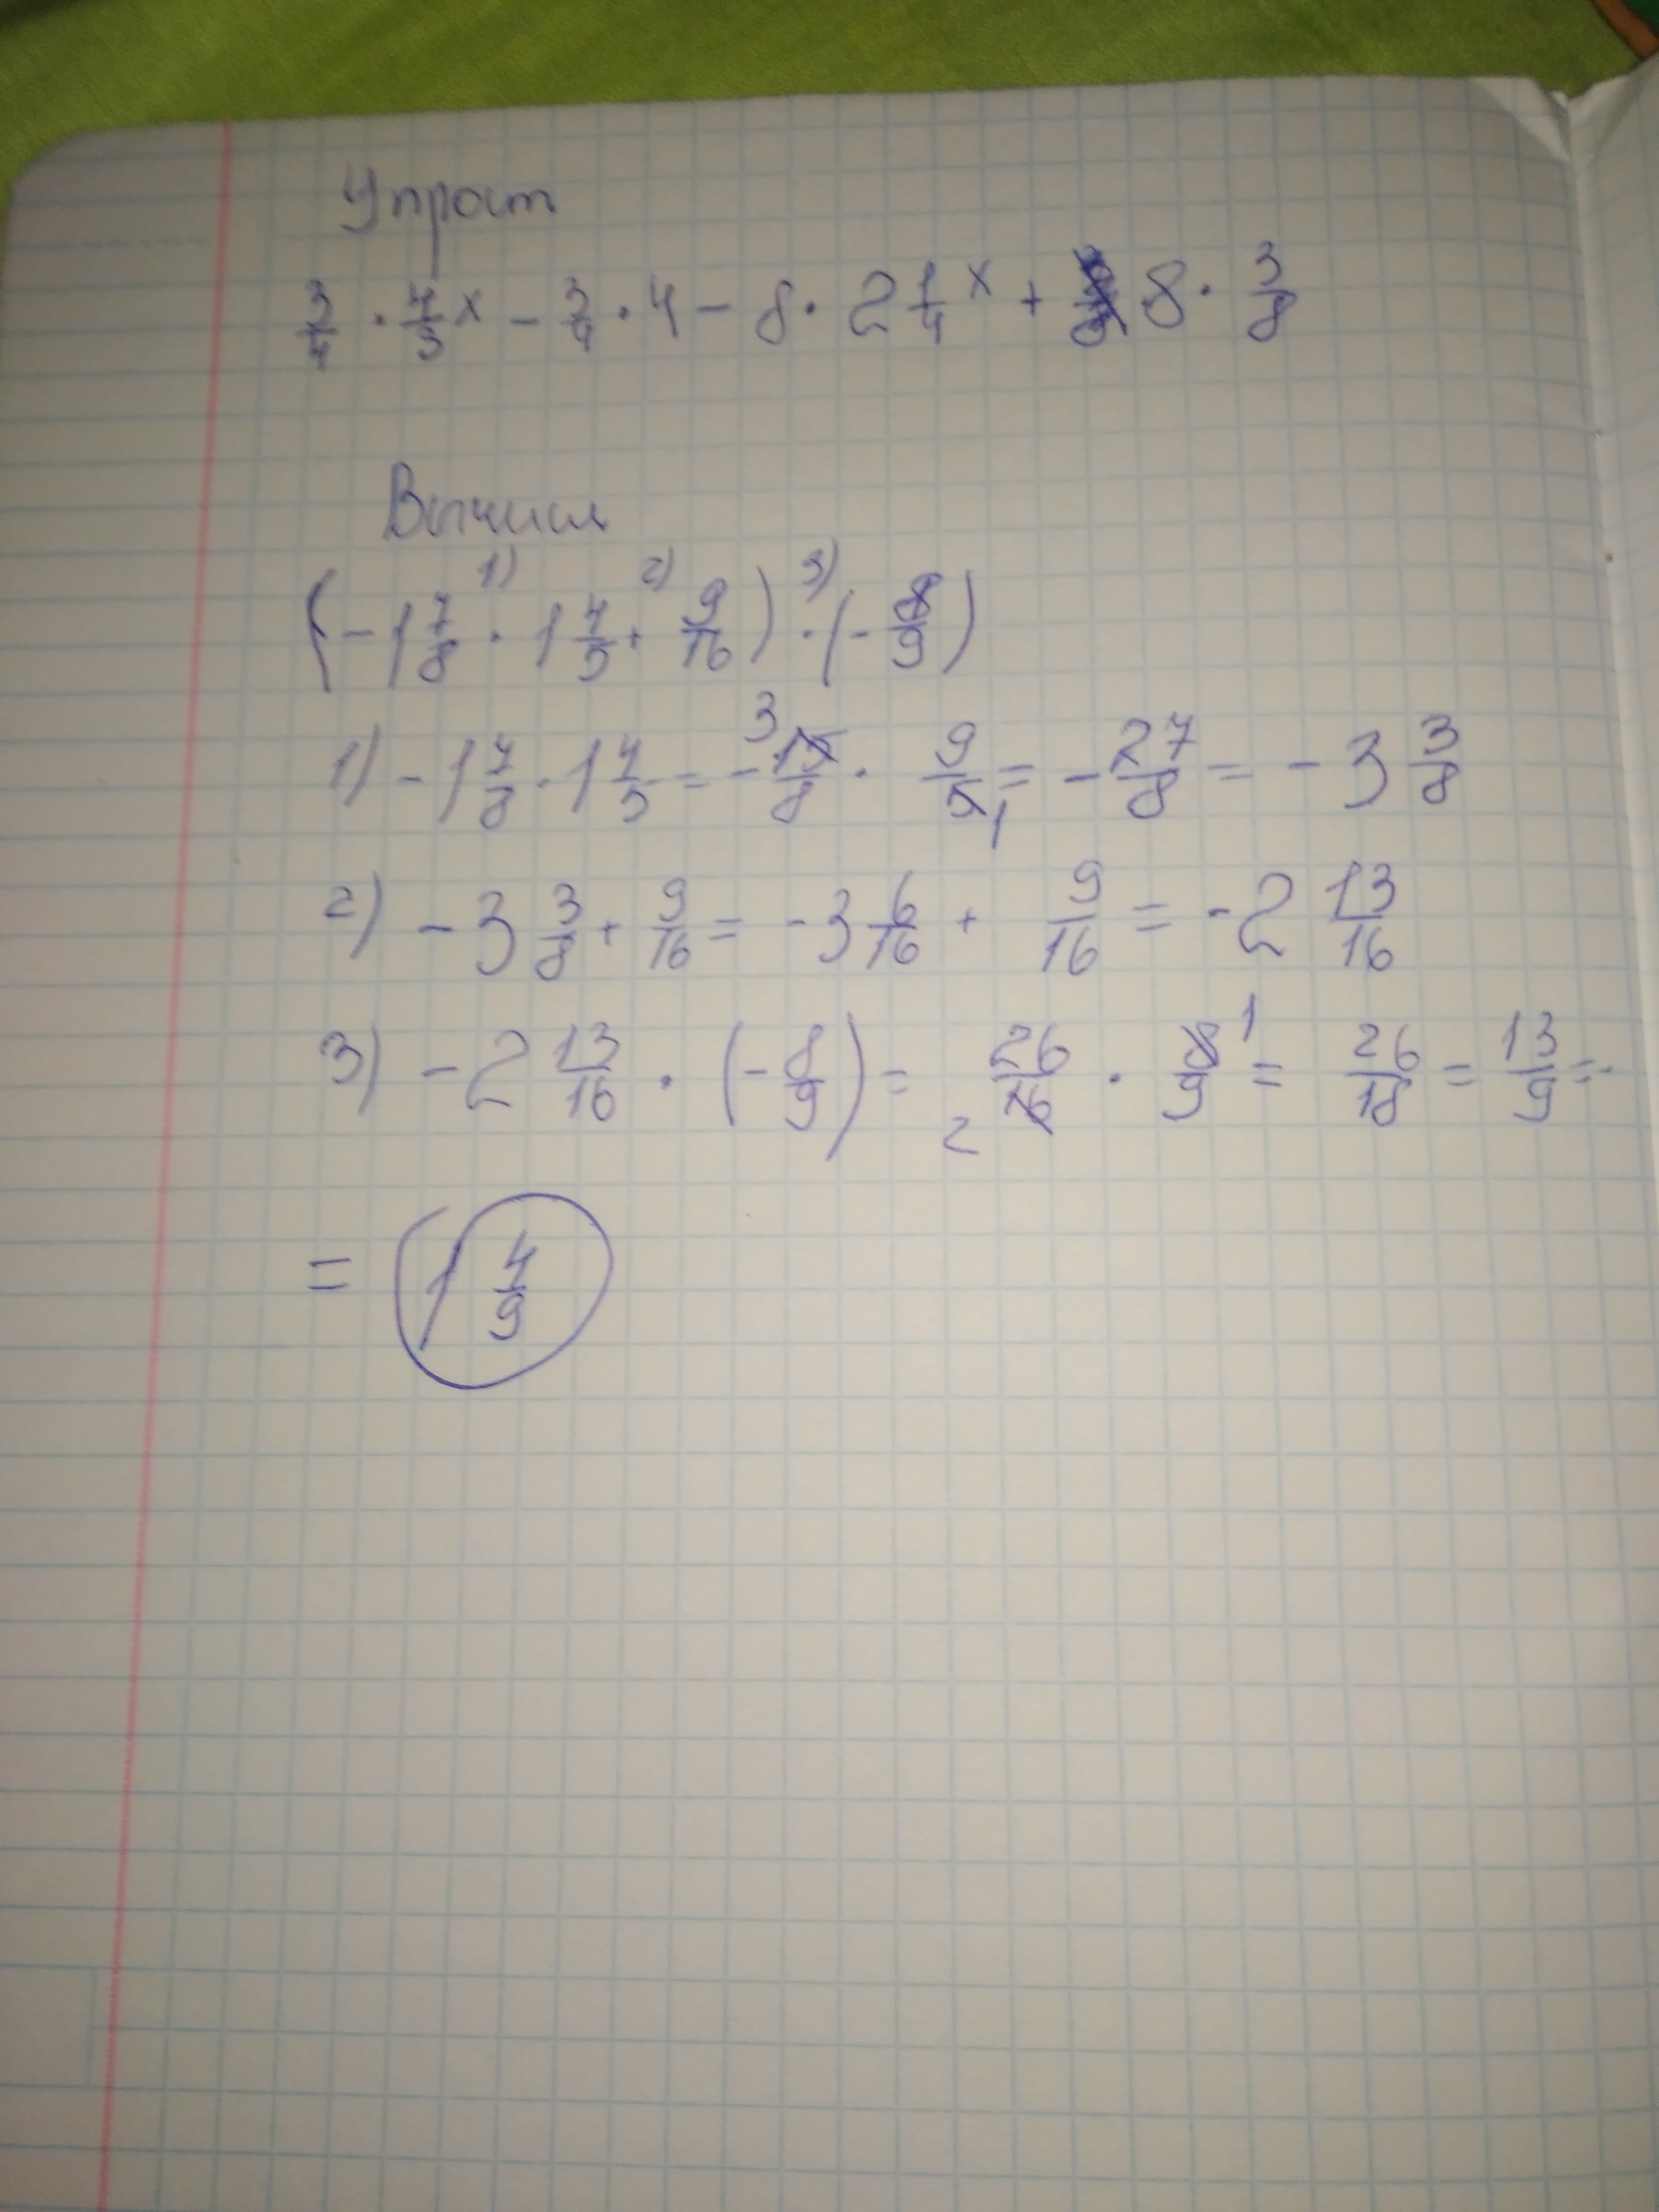 Упрост
3/4 · 4/3 x - 3/4 · 4 - 8 · 2 1/4 x + 8 · 3/8
Вычисл
1) 2) 3)
(-1 7/8 · 1 4/5 + 9/16) · (- 8/9)
1) -1 7/8 · 1 4/5 = - 3 15/8 · 9/5 1 = - 27/8 = - 3 3/8
2) - 3 3/8 + 9/16 = -3 6/16 + 9/16 = -2 13/16
3) -2 13/16 · (- 8/9) = 26/16 2 · 8/9 1 = 26/18 = 13/9 =
= 1 4/9